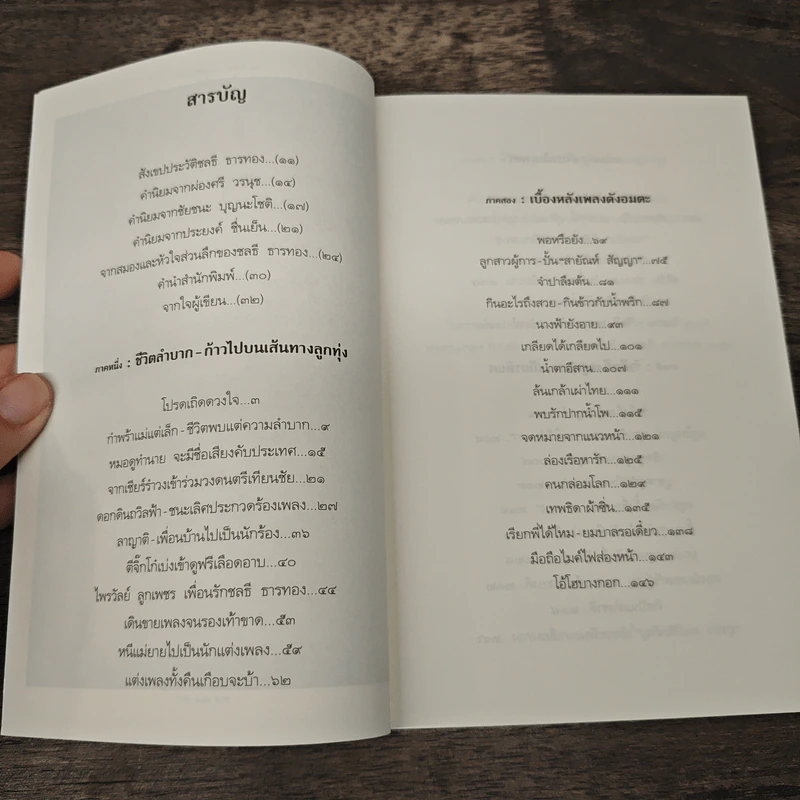 สารบัญ
สังเขปประวัติชลธี ธารทอง...(๑๑)
คำนิยมจากผ่องศรี วรนุช...(๑๔)
คำนิยมจากชัยชนะ บุญนะโชติ...(๑๗)
คำนิยมจากประยงค์ ชื่นเย็น...(๒๑)
จากสมองและหัวใจส่วนลึกของชลธี ธารทอง...(๒๔)
คำนำสำนักพิมพ์...(๓๐)
จากใจผู้เขียน...(๓๒)
ภาคหนึ่ง : ชีวิตลำบาก - ก้าวไปบนเส้นทางลูกทุ่ง
โปรดเถิดดวงใจ...๓
กำพร้าแม่แต่เล็ก - ชีวิตพบแต่ความลำบาก...๙
หมอดูทำนาย จะมีชื่อเสียงคับประเทศ...๑๕
จากเชียร์รำวงเข้าร่วมวงดนตรีเทียนชัย...๒๑
ดอกดินถวิลฟ้า - ชนะเลิศประกวดร้องเพลง...๒๗
ลาญาติ - เพื่อนบ้านไปเป็นนักร้อง...๓๖
ตีจิ๊กโก๋เบ่งเข้าดูฟรีเลือดอาบ...๔๐
ไพรวัลย์ ลูกเพชร เพื่อนรักชลธี ธารทอง...๔๔
เดินขายเพลงจนรองเท้าขาด...๕๓
หนีแม่ยายไปเป็นนักแต่งเพลง...๕๙
แต่งเพลงทั้งคืนเกือบจะบ้า...๖๒
ภาคสอง : เบื้องหลังเพลงดังอมตะ
พอหรือยัง...๖๙
ลูกสาวผู้การ - ปั้น "สายัณห์ สัญญา"...๗๕
จำปาลืมต้น...๘๑
กินอะไรถึงสวย - กินข้าวกับน้ำพริก...๘๗
นางฟ้ายังอาย...๙๓
เกลียดได้เกลียดไป...๑๐๑
น้ำตาอีสาน...๑๐๗
ล้นเกล้าเผ่าไทย...๑๑๑
พบรักปากน้ำโพ...๑๑๕
จดหมายจากแนวหน้า...๑๒๑
ล่องเรือหารัก...๑๒๕
คนกล่อมโลก...๑๒๙
เทพธิดาผ้าซิ่น...๑๓๕
เรียกพี่ได้ไหม - ยมบาลรอเดี๋ยว...๑๓๘
มือถือไมค์ไฟส่องหน้า...๑๔๓
โอ้โฮบางกอก...๑๔๖